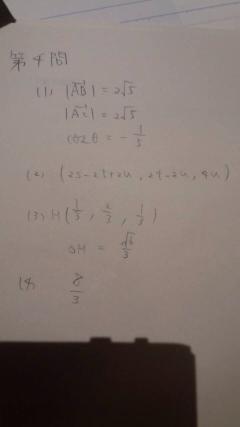 第4問
(1) |AB| = 2√5
|AC| = 2√5
cos2θ = -1/5
(2) (2s-2t+2u, 2t-2u, 4u)
(3) H(1/3, 2/3, 1/3)
OH = √6/3
(4) 8/3